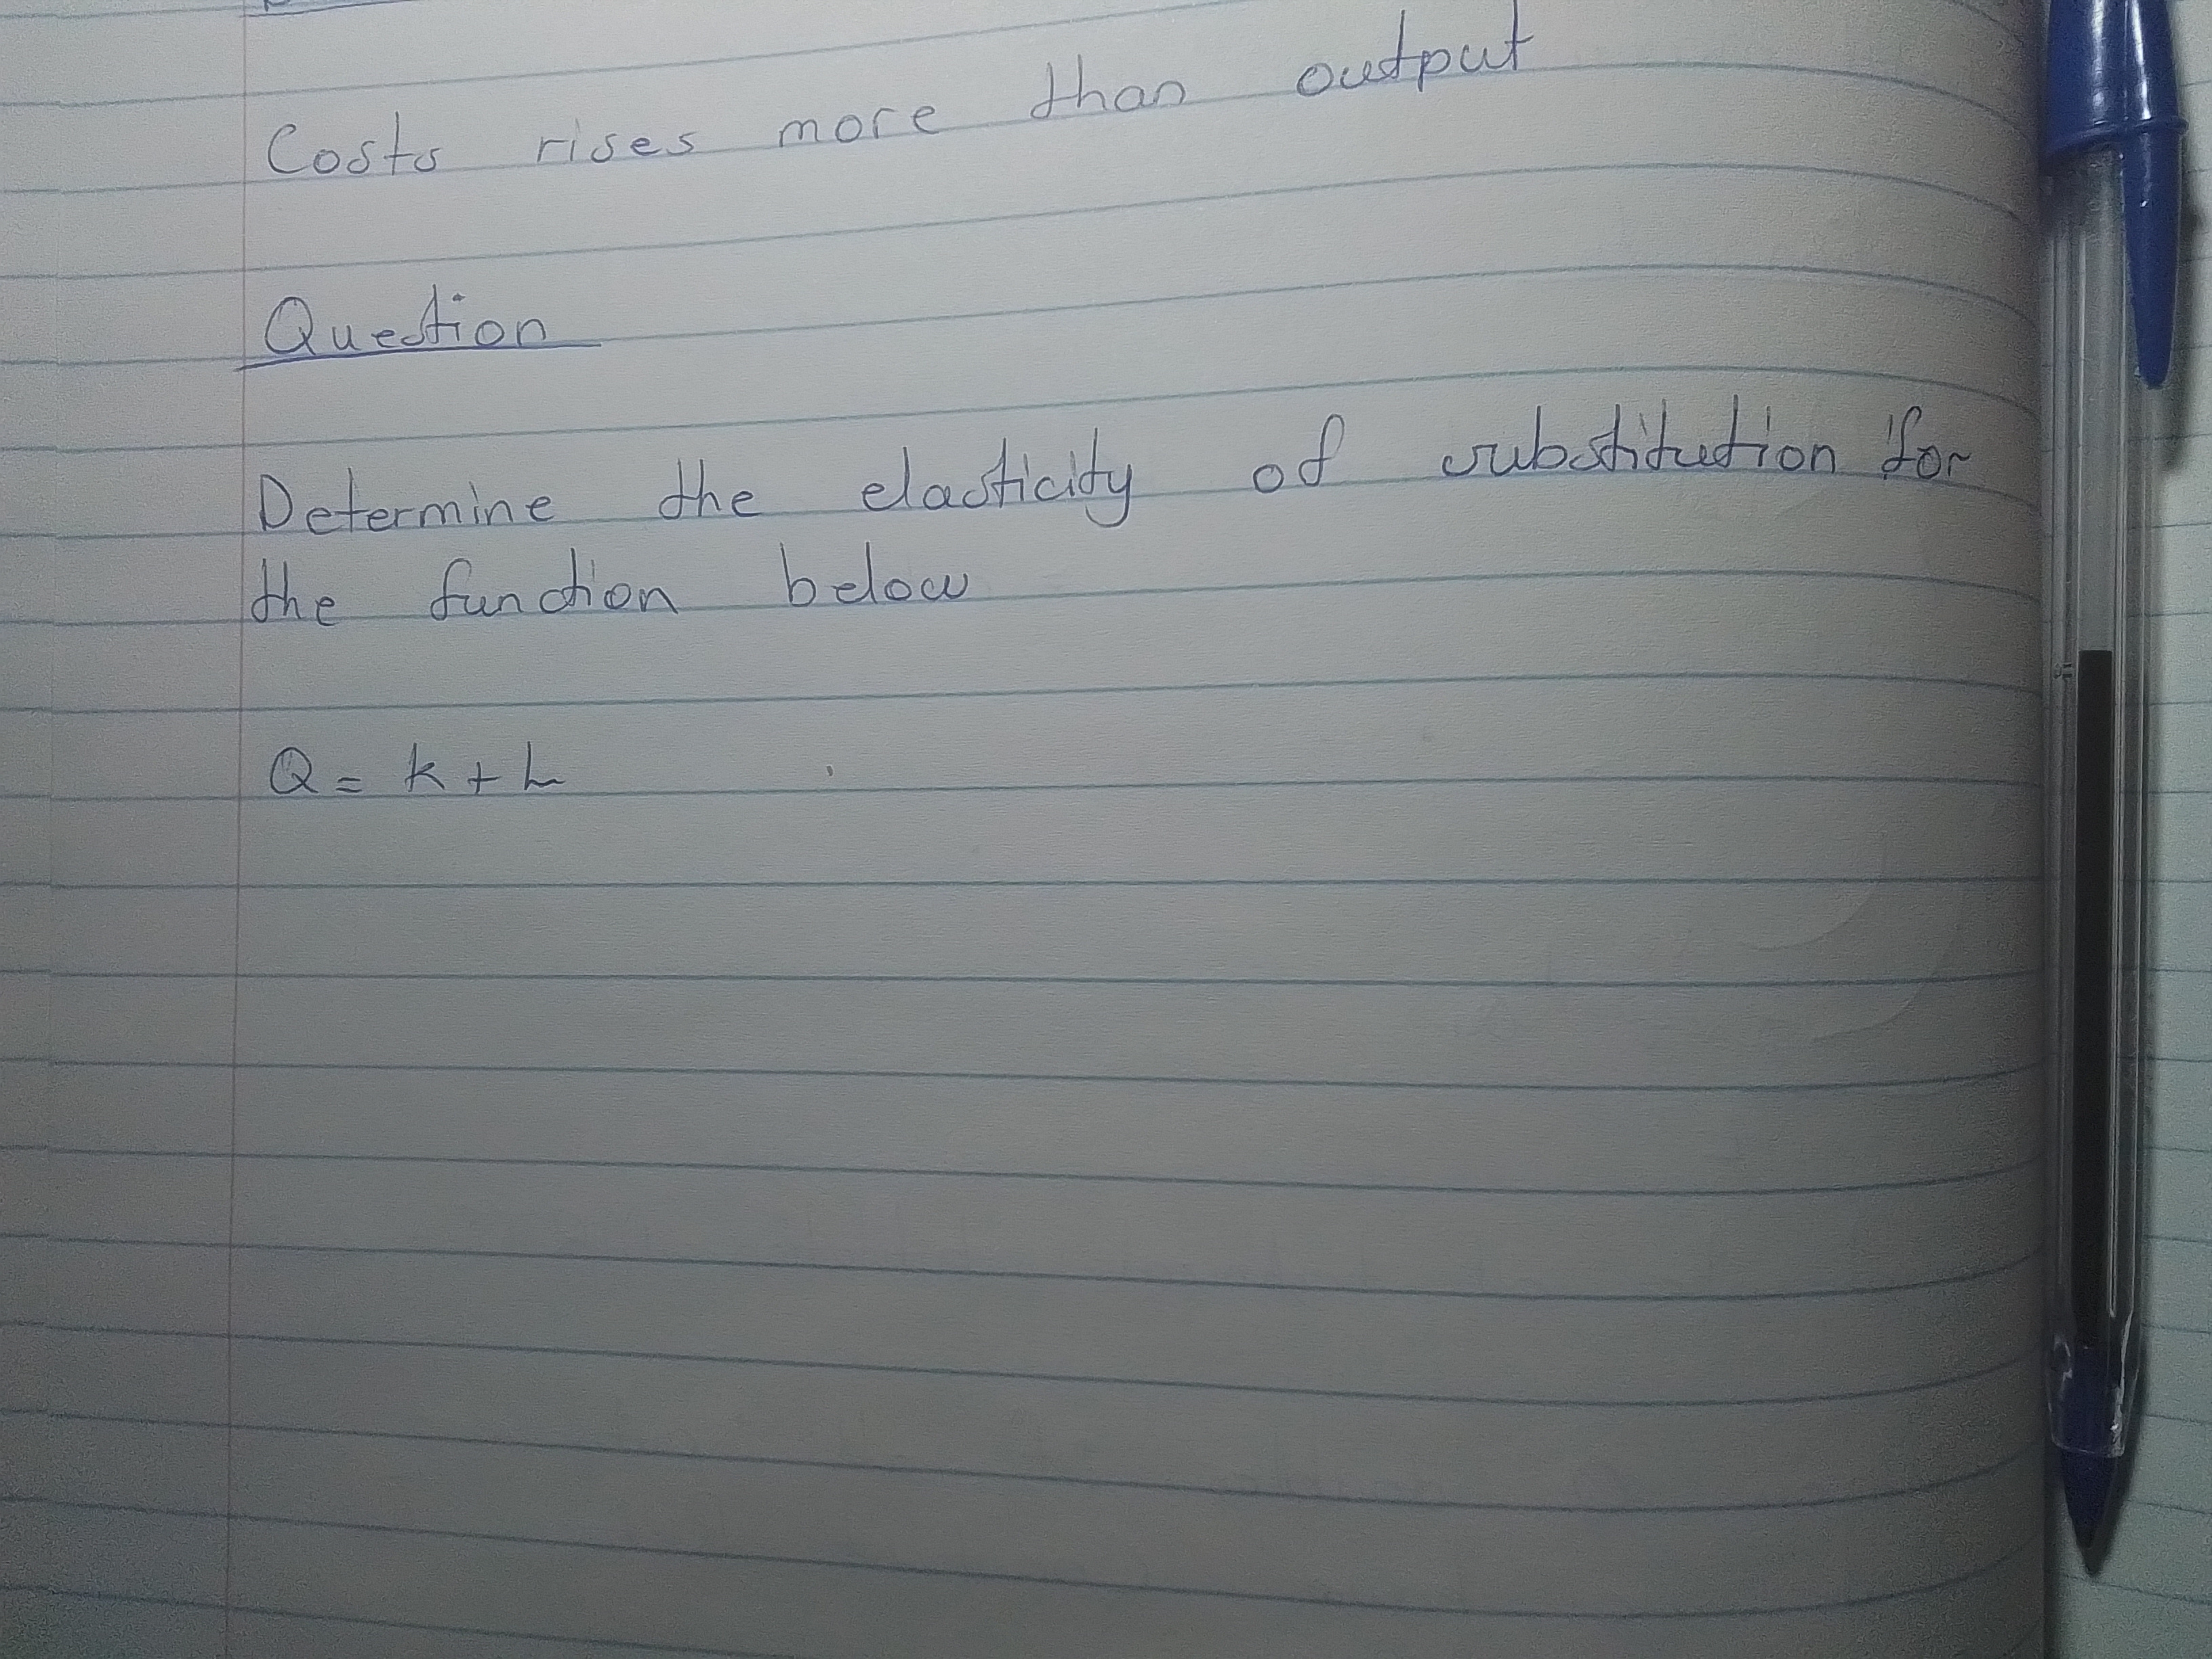 Costs rises more than output
Question
Determine the elasticity of substitution for
the function below
Q = k + L